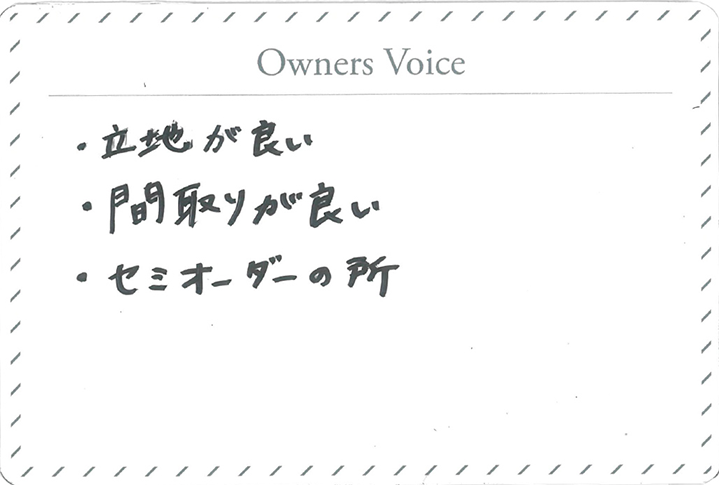 Owners Voice
・立地が良い
・間取りが良い
・セミオーダーの所